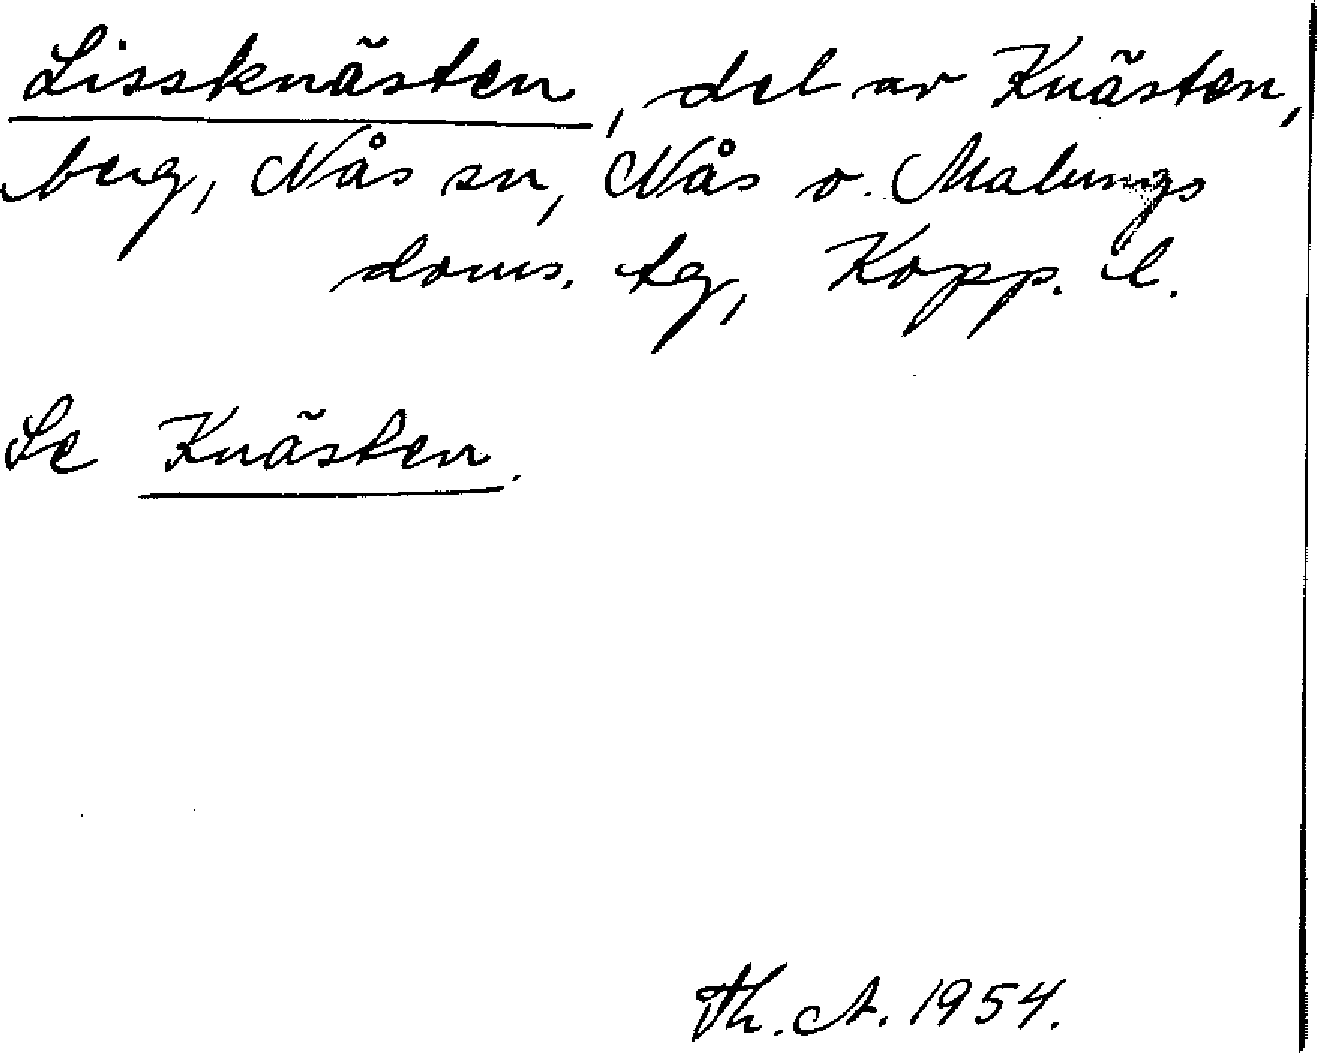 Lissknästen, del av Knästen,
berg, Nås sn, Nås o. Malungs
doms. tg, Kopp. l.
Se Knästen.
Th. A. 1954.